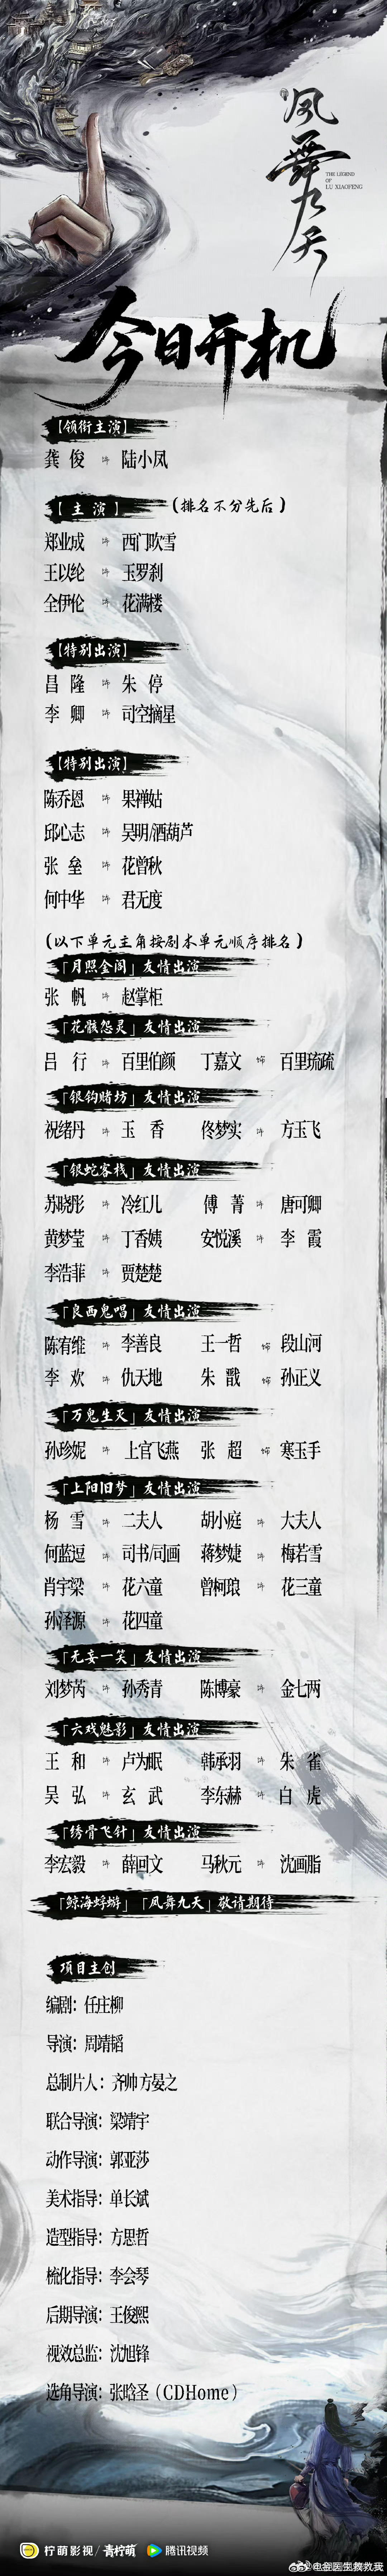 凤舞九天
THE LEGEND
OF
LU XIAOFENG
今日开机
【领衔主演】
龚俊 饰 陆小凤
【主演】（排名不分先后）
郑业成 饰 西门吹雪
王以纶 饰 玉罗刹
全伊伦 饰 花满楼
【特别出演】
昌隆 饰 朱停
李卿 饰 司空摘星
【特别出演】
陈乔恩 饰 果禅姑
邱心志 饰 吴明/酒葫芦
张垒 饰 花曾秋
何中华 饰 君无度
（以下单元主角按剧本单元顺序排名）
「月照金阁」友情出演
张帆 饰 赵掌柜
「花骸怨灵」友情出演
吕行 饰 百里伯颜 丁嘉文 饰 百里琉疏
「银钩赌坊」友情出演
祝绪丹 饰 玉香 佟梦实 饰 方玉飞
「银蛇客栈」友情出演
苏晓彤 饰 冷红儿 傅菁 饰 唐可卿
黄梦莹 饰 丁香姨 安悦溪 饰 李霞
李浩菲 饰 贾楚楚
「良西鬼唱」友情出演
陈宥维 饰 李善良 王一哲 饰 段山河
李欢 饰 仇天地 朱戬 饰 孙正义
「万鬼生灭」友情出演
孙珍妮 饰 上官飞燕 张超 饰 寒玉手
「上阳旧梦」友情出演
杨雪 饰 二夫人 胡小庭 饰 大夫人
何蓝逗 饰 司书/司画 蒋梦婕 饰 梅若雪
肖宇梁 饰 花六童 曾柯琅 饰 花三童
孙泽源 饰 花四童
「无妄一笑」友情出演
刘梦芮 饰 孙秀青 陈博豪 饰 金七两
「六戏魅影」友情出演
王和 饰 卢为眠 韩承羽 饰 朱雀
吴弘 饰 玄武 李东赫 饰 白虎
「绣骨飞针」友情出演
李宏毅 饰 薛回文 马秋元 饰 沈画脂
「鲸海蜉蝣」「凤舞九天」敬请期待
项目主创
编剧：任庄柳
导演：周靖韬
总制片人：齐帅 方晏之
联合导演：梁靖宇
动作导演：郭亚莎
美术指导：单长斌
造型指导：方思哲
梳化指导：李会琴
后期导演：王俊熙
视效总监：沈旭锋
选角导演：张晗圣（CDHome）
柠萌影视/青柠萌 腾讯视频